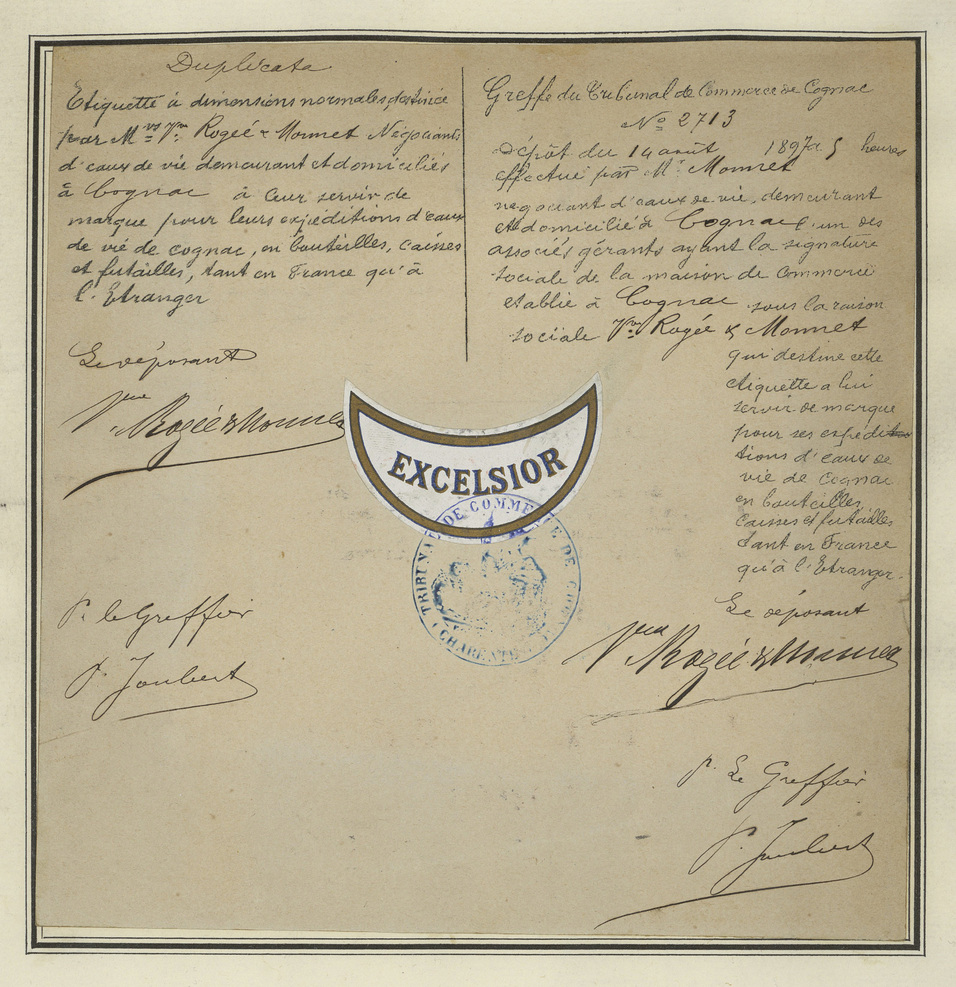 Duplicata
Etiquette à dimensions normales, destinée
par M.rs Vve Rogée & Monnet Négociants
d'eaux de vie demeurant et domiciliés
à Cognac à leur servir de
marque pour leurs expéditions d'eaux
de vie de cognac, en bouteilles, caisses
et futailles, tant en France qu'à
l'Etranger
Le déposant
Vve Rogée & Monnet
P. le Greffier
P. Joubert
Greffe du Tribunal de Commerce de Cognac
No 2713
Dépôt du 14 août 1897 à 5 heures
effectué par Mr. Monnet
négociant d'eaux de vie, demeurant
et domicilié à Cognac, un des
associés gérants ayant la signature
sociale de la maison de Commerce
établie à Cognac sous la raison
sociale Vve Rogée & Monnet
qui destine cette
étiquette a lui
servir de marque
pour ses expédi
tions d'eaux de
vie de Cognac
en bouteilles,
caisses et futailles
tant en France
qu'à l'Etranger.
Le déposant
Vve Rogée & Monnet
p. Le Greffier
P. Joubert
EXCELSIOR
TRIBUNAL DE COMMERCE DE COGNAC
(CHARENTE)